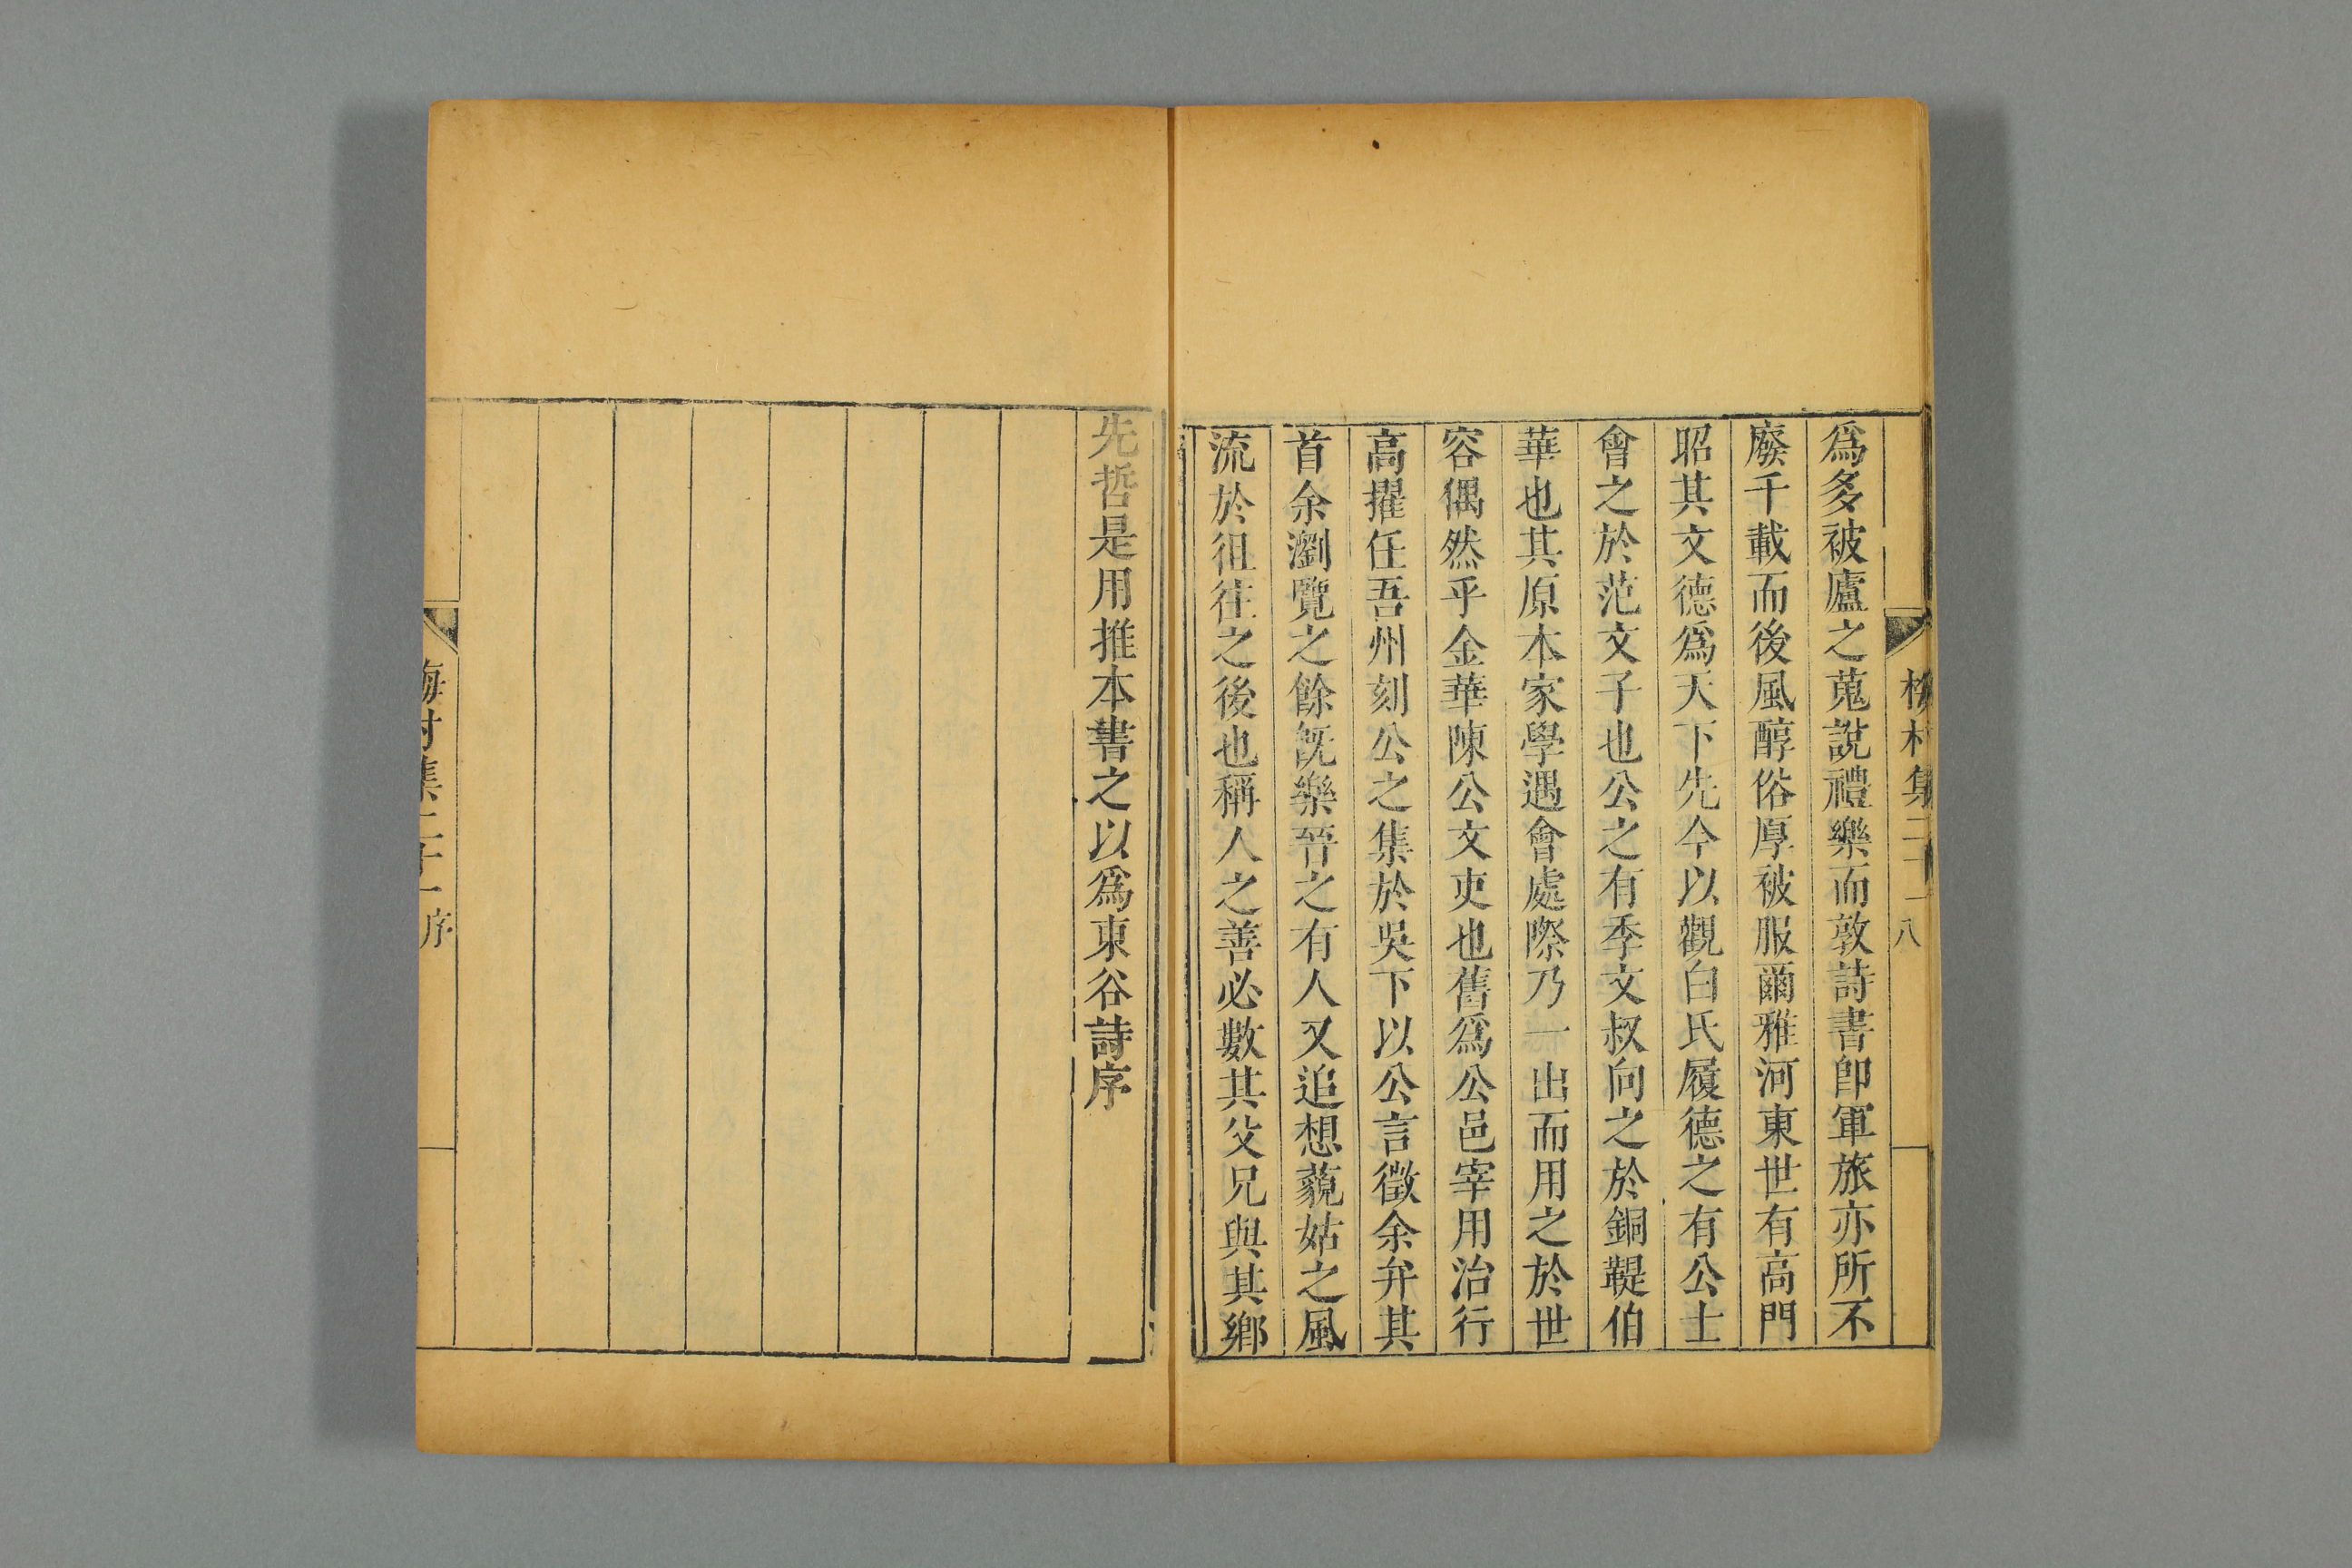 梅村集二十一 八
爲多被廬之蒐說禮樂而敦詩書卽軍旅亦所不
廢千載而後風醇俗厚被服爾雅河東世有高門
昭其文德爲天下先今以觀白氏履德之有公士
會之於范文子也公之有季文叔向之於銅鞮伯
華也其原本家學遇會處際乃一出而用之於世
容偶然乎金華陳公文吏也舊爲公邑宰用治行
高擢任吾州刻公之集於吳下以公言徵余弁其
首余瀏覽之餘旣樂晉之有人又追想藐姑之風
流於徂徃之後也稱人之善必數其父兄與其鄉
先哲是用推本書之以爲東谷詩序
梅村集二十一 序